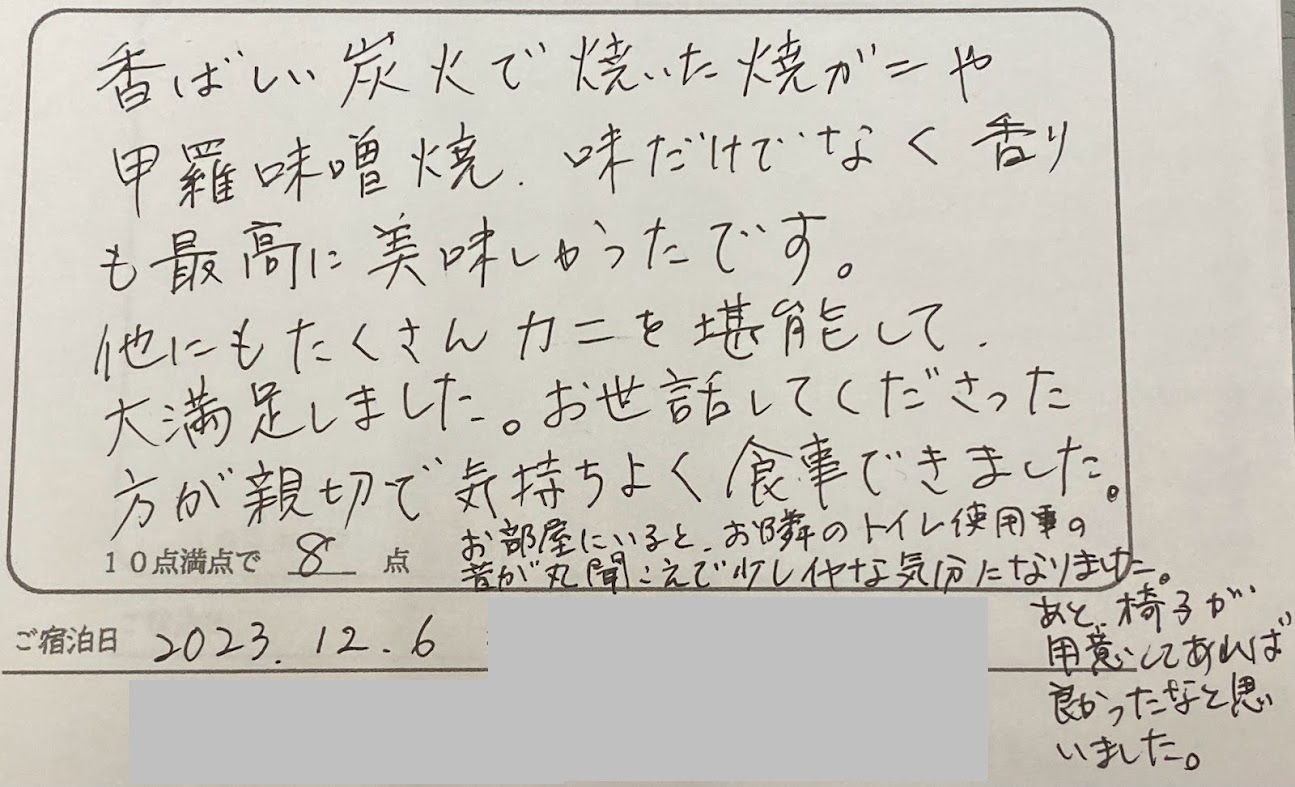 香ばしい炭火で焼いた焼ガニや
甲羅味噌焼、味だけでなく香り
も最高に美味しかったです。
他にもたくさんカニを堪能して、
大満足しました。お世話してくださった
方が親切で気持ちよく食事できました。
10点満点で 8 点
お部屋にいると、お隣のトイレ使用事の
音が丸聞こえで少しイヤな気分になりました。
あと、椅子が
用意してあれば
良かったなと思
いました。
ご宿泊日 2023.12.6